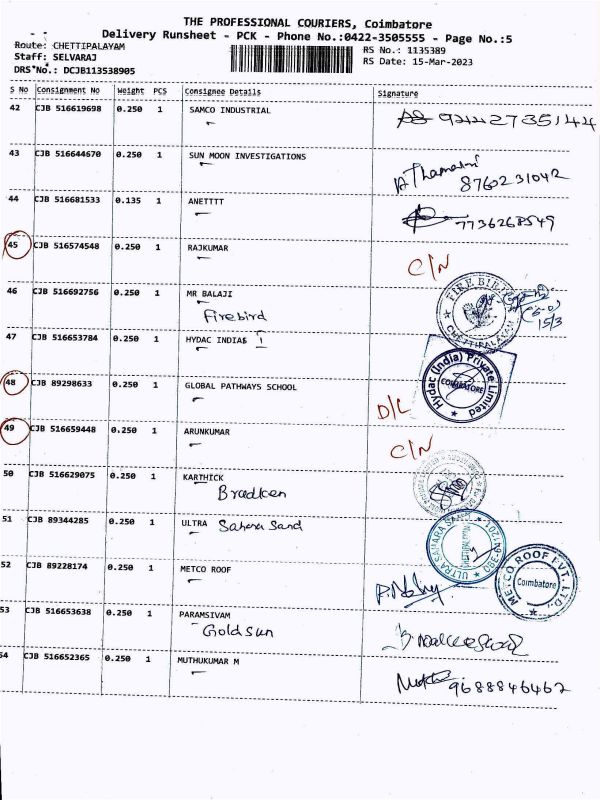 THE PROFESSIONAL COURIERS, Coimbatore
Delivery Runsheet - PCK - Phone No.:0422-3505555 - Page No.:5
Route: CHETTIPALAYAM RS No.: 1135389
Staff: SELVARAJ RS Date: 15-Mar-2023
DRS No.: DCJB113538905
S No Consignment No Weight PCS Consignee Details Signature
42 CJB 516619698 0.250 1 SAMCO INDUSTRIAL
43 CJB 516644670 0.250 1 SUN MOON INVESTIGATIONS
8760231042
44 CJB 516681533 0.135 1 ANETTTT
7736268549
45 CJB 516574548 0.250 1 RAJKUMAR
C/N
46 CJB 516692756 0.250 1 MR BALAJI
Firebird
FIRE BIRD
CHETTIPALAYAM
15/3
47 CJB 516653784 0.250 1 HYDAC INDIAS
Hydac (India) Private Limited
COIMBATORE
48 CJB 89298633 0.250 1 GLOBAL PATHWAYS SCHOOL
D/L
49 CJB 516659448 0.250 1 ARUNKUMAR
C/N
50 CJB 516629075 0.250 1 KARTHICK
Bradken
51 CJB 89344285 0.250 1 ULTRA Sahara Sand
52 CJB 89228174 0.250 1 METCO ROOF
METCO ROOF PVT. LTD.,
Coimbatore
53 CJB 516653638 0.250 1 PARAMSIVAM
Goldsun
54 CJB 516652365 0.250 1 MUTHUKUMAR M
9688846462